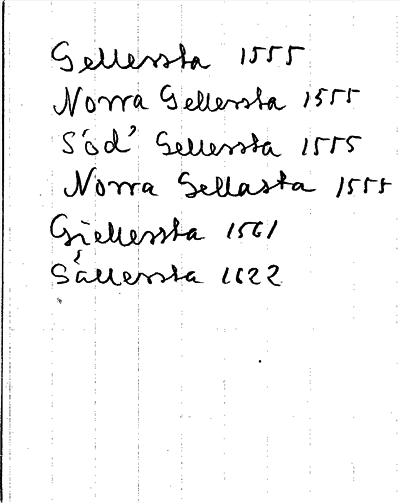 Gellersta 1555
Norra Gellersta 1555
Söd' Gellersta 1555
Norra Gellasta 1555
Giellersta 1561
Gällersta 1622